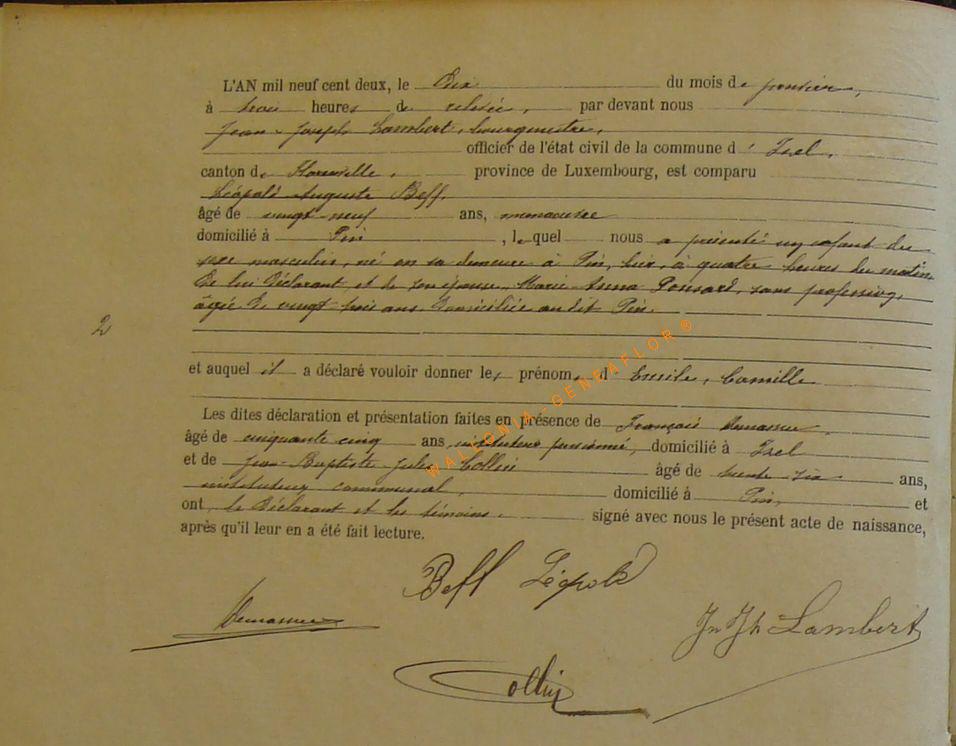 L'AN mil neuf cent deux, le Dix du mois de janvier,
à trois heures de relevée, par devant nous
Jean-Joseph Lambert, bourgmestre,
officier de l'état civil de la commune d' Izel,
canton de Florenville, province de Luxembourg, est comparu
Léopold Auguste Beff,
âgé de vingt-neuf ans,
domicilié à Pin, lequel nous a présenté un enfant du
sexe masculin, né en sa demeure à Pin, hier, à quatre heures du matin
De lui Déclarant et de son épouse, Marie-Anna Ponsard, sans profession,
âgée De vingt trois ans Domiciliée au dit Pin.
2
et auquel il a déclaré vouloir donner les prénoms d' Emile, Camille
Les dites déclaration et présentation faites en présence de François
âgé de cinquante cinq ans, instituteur pensionné, domicilié à Izel
et de Jean-Baptiste Jules Collin âgé de trente six ans,
instituteur communal, domicilié à Pin, et
ont, le Déclarant et les témoins, signé avec nous le présent acte de naissance,
après qu'il leur en a été fait lecture.
Beff Léopold
Jn Jh Lambert
Collin
WALLONIA - GENEAFLOR ®